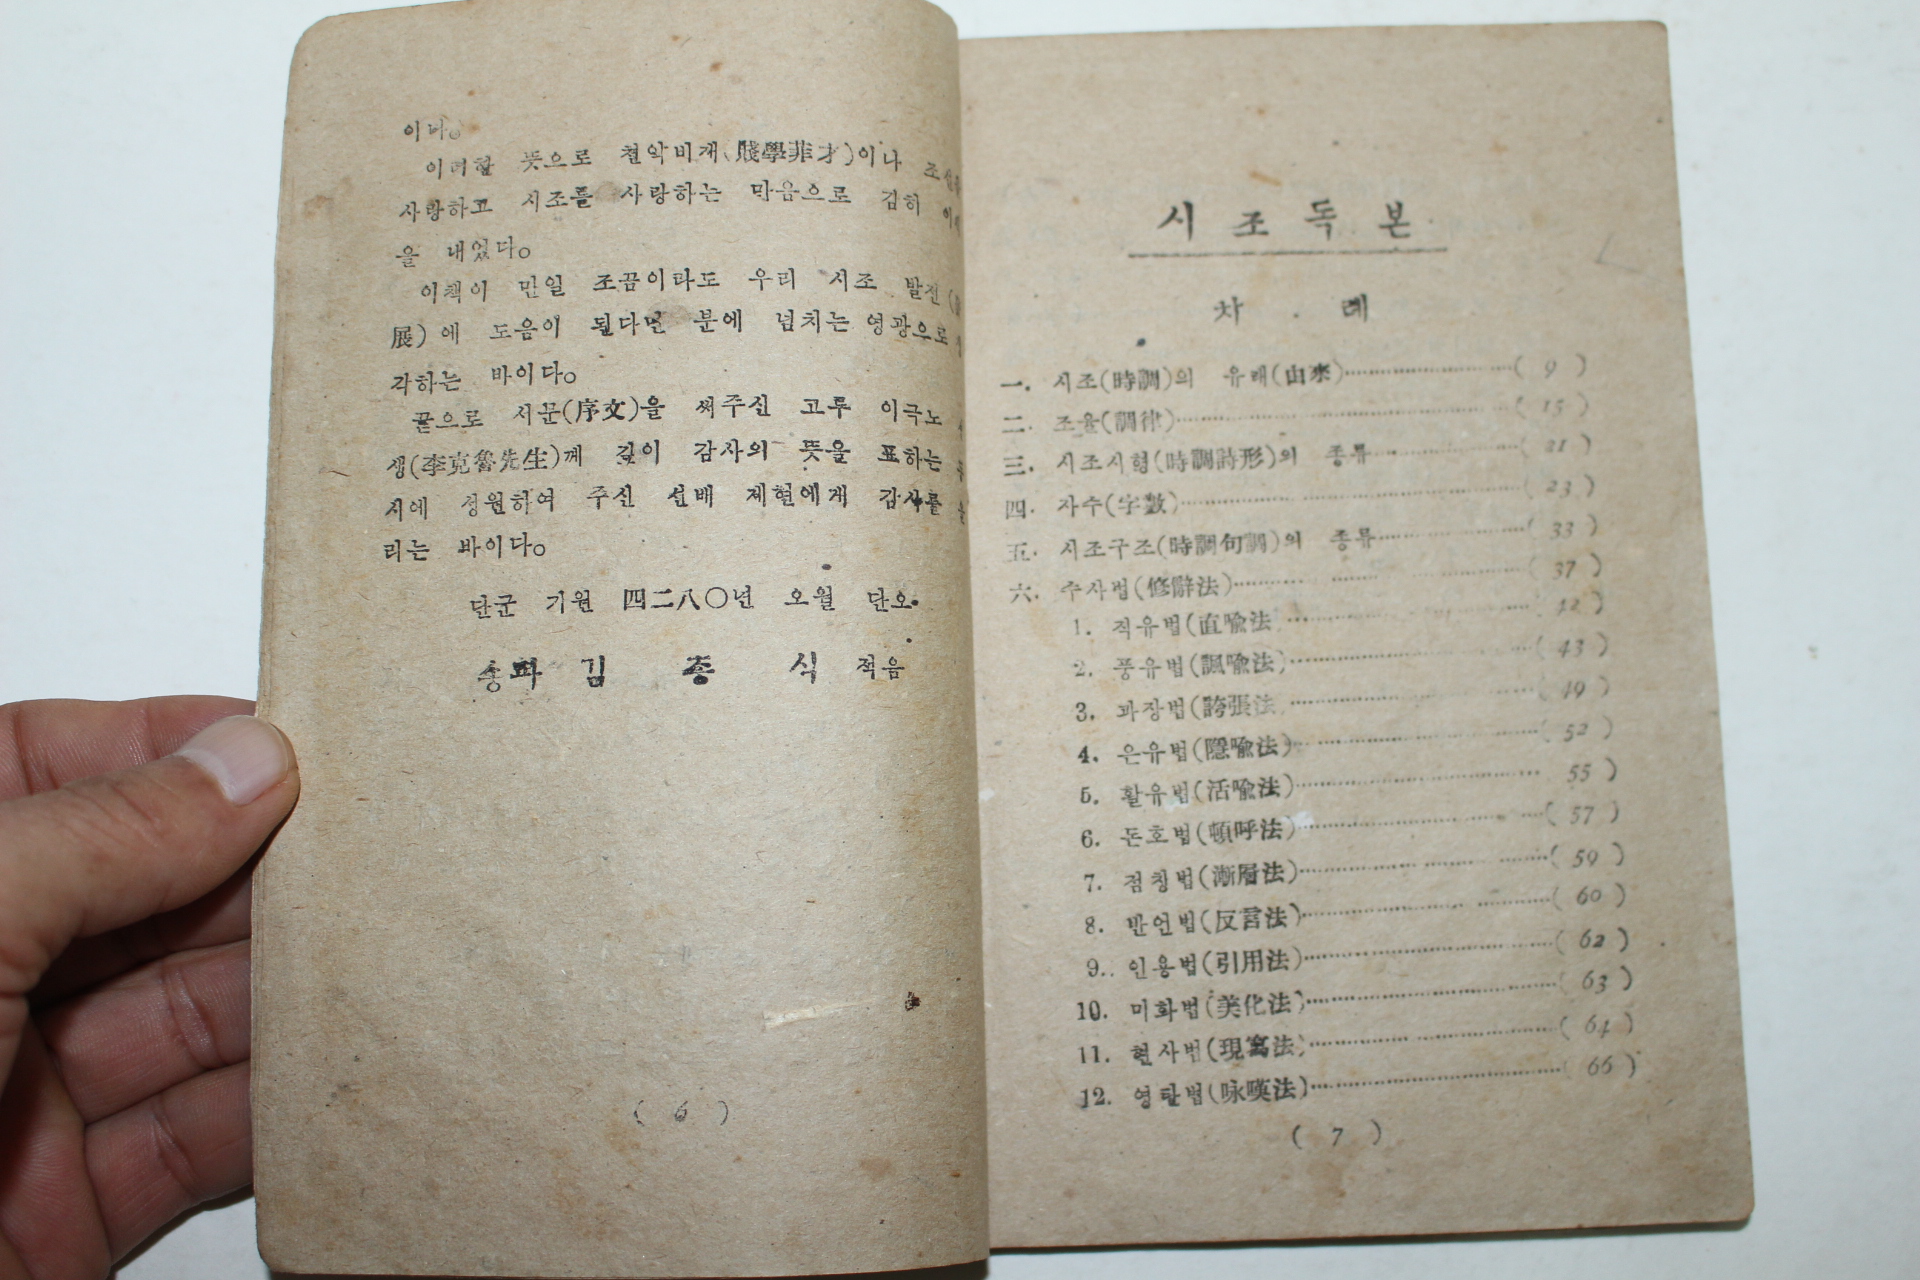 이다。
이러한 뜻으로 천학비재(賤學菲才)이나
사랑하고 시조를 사랑하는 마음으로 감히
을 내었다。
이책이 만일 조끔이라도 우리 시조 발전
展)에 도음이 된다면 분에 넘치는 영광으로
각하는 바이다。
끝으로 서문(序文)을 써주신 고루 이극노
생(李克魯先生)께 깊이 감사의 뜻을 표하는
시에 성원하여 주신 선배 제현에게 감사를
리는 바이다。
단군 기원 四二八〇년 오월 단오
송파 김 종 식 적음
( 6 )
시 조 독 본
차 례
一. 시조(時調)의 유래(由來)……………( 9 )
二. 조율(調律)……………( 15 )
三. 시조시형(時調詩形)의 종류……………( 21 )
四. 자수(字數)……………( 23 )
五. 시조구조(時調句調)의 종류……………( 33 )
六. 수사법(修辭法)……………( 37 )
1. 직유법(直喩法)……………( 42 )
2. 풍유법(諷喩法)……………( 43 )
3. 과장법(誇張法)……………( 49 )
4. 은유법(隱喩法)……………( 52 )
5. 활유법(活喩法)…………… 55 )
6. 돈호법(頓呼法)……………( 57 )
7. 점칭법(漸層法)……………( 59 )
8. 반언법(反言法)……………( 60 )
9. 인용법(引用法)……………( 62 )
10. 미화법(美化法)……………( 63 )
11. 현사법(現寫法)……………( 64 )
12. 영탄법(咏嘆法)……………( 66 )
( 7 )